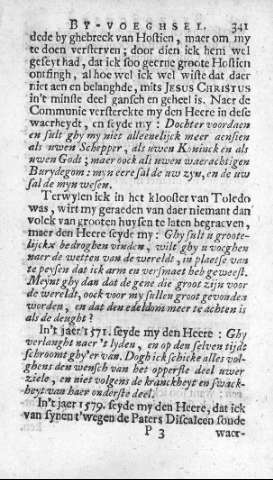 BY-VOEGHSEL. 341
dede by ghebreck van Hostien, maer om my
te doen versterven; door dien ick hem wel
geseyt had, dat ick soo geerne groote Hostien
ontfingh, al hoe wel ick wiste dat daer
niet aen en belanghde, mits JESUS CHRISTUS
in't minste deel gansch en geheel is. Naer de
Communie versterekte my den Heere in dese
waerheydt, en seyde my: Dochter voordaen
en sult ghy my niet alleenelijck meer aensien
als uwen Schepper, als uwen Koninck en als
uwen Godt; maer oock als uwen waerachtigen
Burydegom: mijn eere sal de uw zyn, en de uw
sal de myn wesen.
Terwylen ick in het klooster van Toledo
was, wirt my geraeden van daer niemant dan
volck van grooten huysen te laten begraeven,
maer den Heere seyde my: Ghy sult u groote-
lijckx bedroghen vinden, wilt ghy u voeghen
naer de wetten van de wereldt, in plaese van
te peysen dat ick arm en versmaet heb geweest.
Meynt ghy dan dat de gene die groot zijn voor
de wereldt, oock voor my sullen groot gevonden
worden, en dat den edeldom meer te achten is
als de deught?
In't jaer 1571. seyde my den Heere: Ghy
verlanght naer't lyden, en op den selven tijdt
schroomt ghy'er van. Dogh ick schicke alles vol-
ghens den wensch van het opperste deel uwer
ziele, en niet volgens de kranckheyt en swack-
heyt van haer onderste deel.
In't jaer 1579. seyde my den Heere, dat ick
van synen t'wegen de Paters Discalcen soude
P 3 waer-